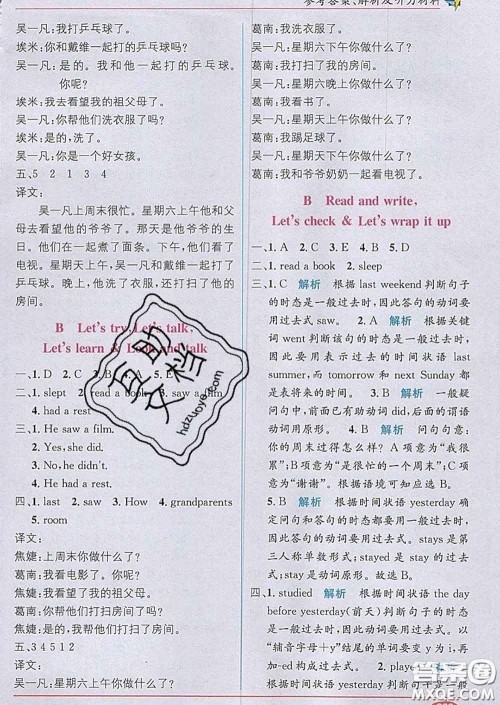 参考答案、解析及听力材料
吴一凡:我打乒乓球了。
埃米:你和戴维一起打的乒乓球吗?
吴一凡:是的,我们一起打的乒乓球。
你呢?
埃米:我去看望我的祖父母了。
吴一凡:你帮他们洗衣服了吗?
埃米:是的,洗了。
吴一凡:你是一个好女孩。
五、5 2 1 3 4
译文:
吴一凡上周末很忙。星期六上午他和父
母去看望他的爷爷了。那天是他爷爷的生日。
他们在一起吃了面条。下午,他们一起看了电
视。星期天上午,他打扫了房间并和戴维一起打了
乒乓球。晚上,他洗了衣服,还打扫了他的
房间。
B Let's try, Let's talk,
Let's learn & Look and talk
一、1. D 2. C 3. A 4. B 5. E
二、1. slept 2. read a book 3. saw a film
4. had a rest
三、1. He saw a film.
2. Yes, she did.
3. No, he didn't.
4. He had a rest.
四、1. last 2. saw 3. How 4. grandparents
5. room
译文:
焦婕:上周末你做什么了?
葛南:我看电影了。你呢?
焦婕:我看望了我的祖父母。
葛南:你帮他们打扫房间了吗?
焦婕:是的,我打扫了。
五、3 4 5 1 2
译文:
吴一凡:星期六上午你做什么了?
葛南:我看书了。
吴一凡:星期六下午你做什么了?
葛南:我打扫了我的房间。
吴一凡:星期六晚上你做什么了?
葛南:我洗衣服了。
吴一凡:星期天上午你做什么了?
葛南:我踢足球了。
吴一凡:星期天下午你做什么了?
葛南:我和爷爷奶奶一起看电视了。
B Read and write,
Let's check & Let's wrap it up
一、1. A 2. C 3. E 4. B 5. D
二、1. read a book 2. sleep
三、1. C 解析 根据 last weekend 判断句子
的时态是一般过去时,因此答句的动词要
用过去式 saw,故选 C。 2. A 解析 根据关键
词 went 判断句子的时态为一般过去时,因
此要用表示过去的时间状语 last
summer,而 tomorrow 和 next Sunday 都
是表将来的时间。 3. B 解析 一般疑问
句中前面已有助动词 did,后面的谓语
动词用原形。 4. B 解析 问句句意:
你的周末过得怎么样?A 项意为“我很
累”;B 项意为“很好,谢谢”;C 项意
为“谢谢”。根据语境可知应选 B。
5. B 解析 根据时间状语 yesterday 确
定问句和答句的时态为一般过去时,
因此答句的动词要用过去式。stays 是
第三人称单数形式;stayed 是 stay 的过
去式;stay 是动词原形。故选 B。
四、1. studied 解析 根据时间状语 the day
before yesterday(前天)判断句子的时态
是一般过去时,因此动词要用过去式。以
“辅音字母+y”结尾的单词变 y 为 i,再
加-ed 构成过去式。 2. playe
根据时间状语 yesterday 判断句子是一般